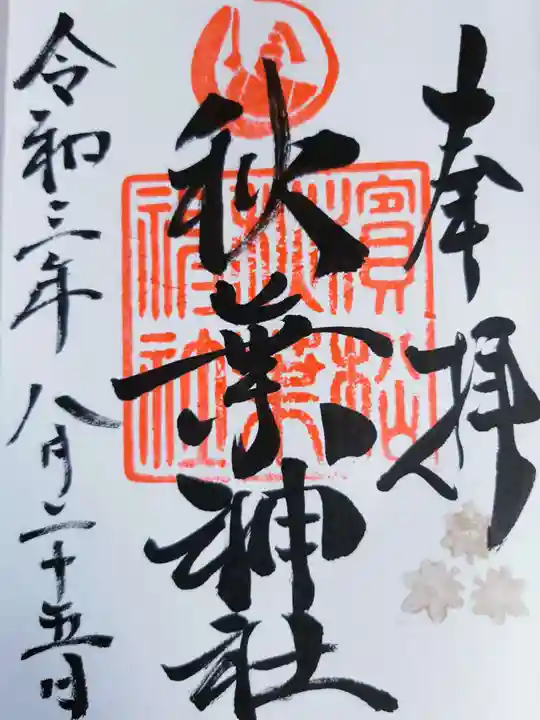 奉拝
濱松
秋葉
神社
秋葉神社
令和三年八月二十五日